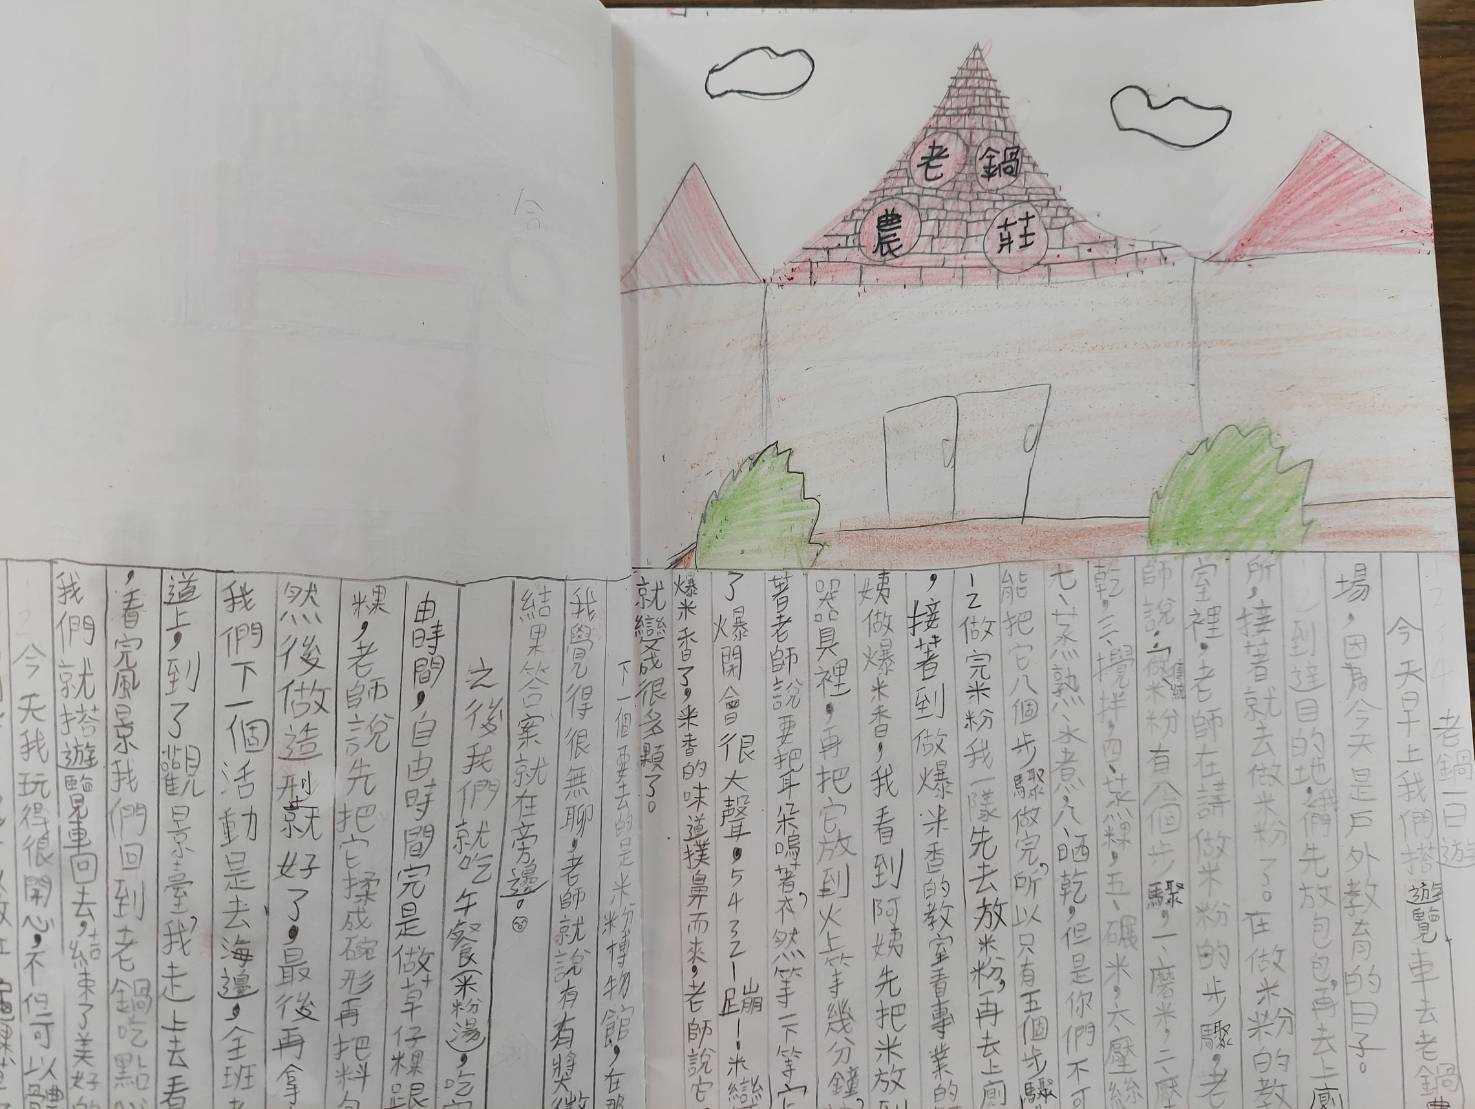 老鍋
農莊
老鍋一日遊
今天早上我們搭遊覽車去老鍋農
場，因為今天是戶外教育的日子。
到達目的地，我們先放包包，再去上廁
所，接著就去做米粉了。在做米粉的教
室裡，老師在講做米粉的步驟，老
師說：「做傳統米粉有八個步驟，一、磨米，二、壓
乾，三、攪拌，四、蒸粿，五、碾米，六、壓絲
七、蒸熟、水煮，八、晒乾，但是你們不可
能把它八個步驟做完，所以只有五個步驟
12做完米粉我一隊先去放米粉，再去上廁
，接著到做爆米香的教室看專業的
姨做爆米香，我看到阿姨先把米放到
器具裡，再把它放到火上等幾分鐘，
著老師說要把耳朵嗚著，不然等一下等它
了爆開會很大聲，54321崩！米變
爆米香了，米香的味道撲鼻而來，老師說它
就變成很多顆了。
下一個要去的是米粉博物館，在那
我覺得很無聊，老師就說有有獎徵
結果答案就在旁邊。
之後我們就吃午餐（米粉湯），吃完
由時間，自由時間完是做草仔粿
粿，老師說先把它揉成碗形再把料包
然後做造型就好了，最後再拿
我們下一個活動是去海邊，全班
道上，到了觀景臺，我走上去看
，看完風景我們回到老鍋吃點心
我們就搭遊覽車回去，結束了美好的
今天我玩得很開心，不但可以體